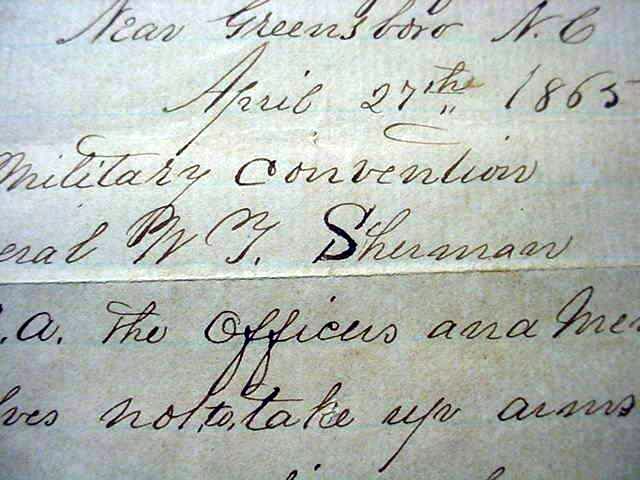 Near Greensboro N.C
April 27th 1865
Military Convention
eral W T. Sherman
.a. The Officers and Men
lves not to take up arms